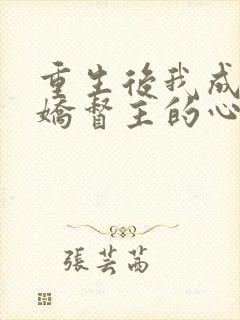 重生後我成
嬌督主的心
張芸茜